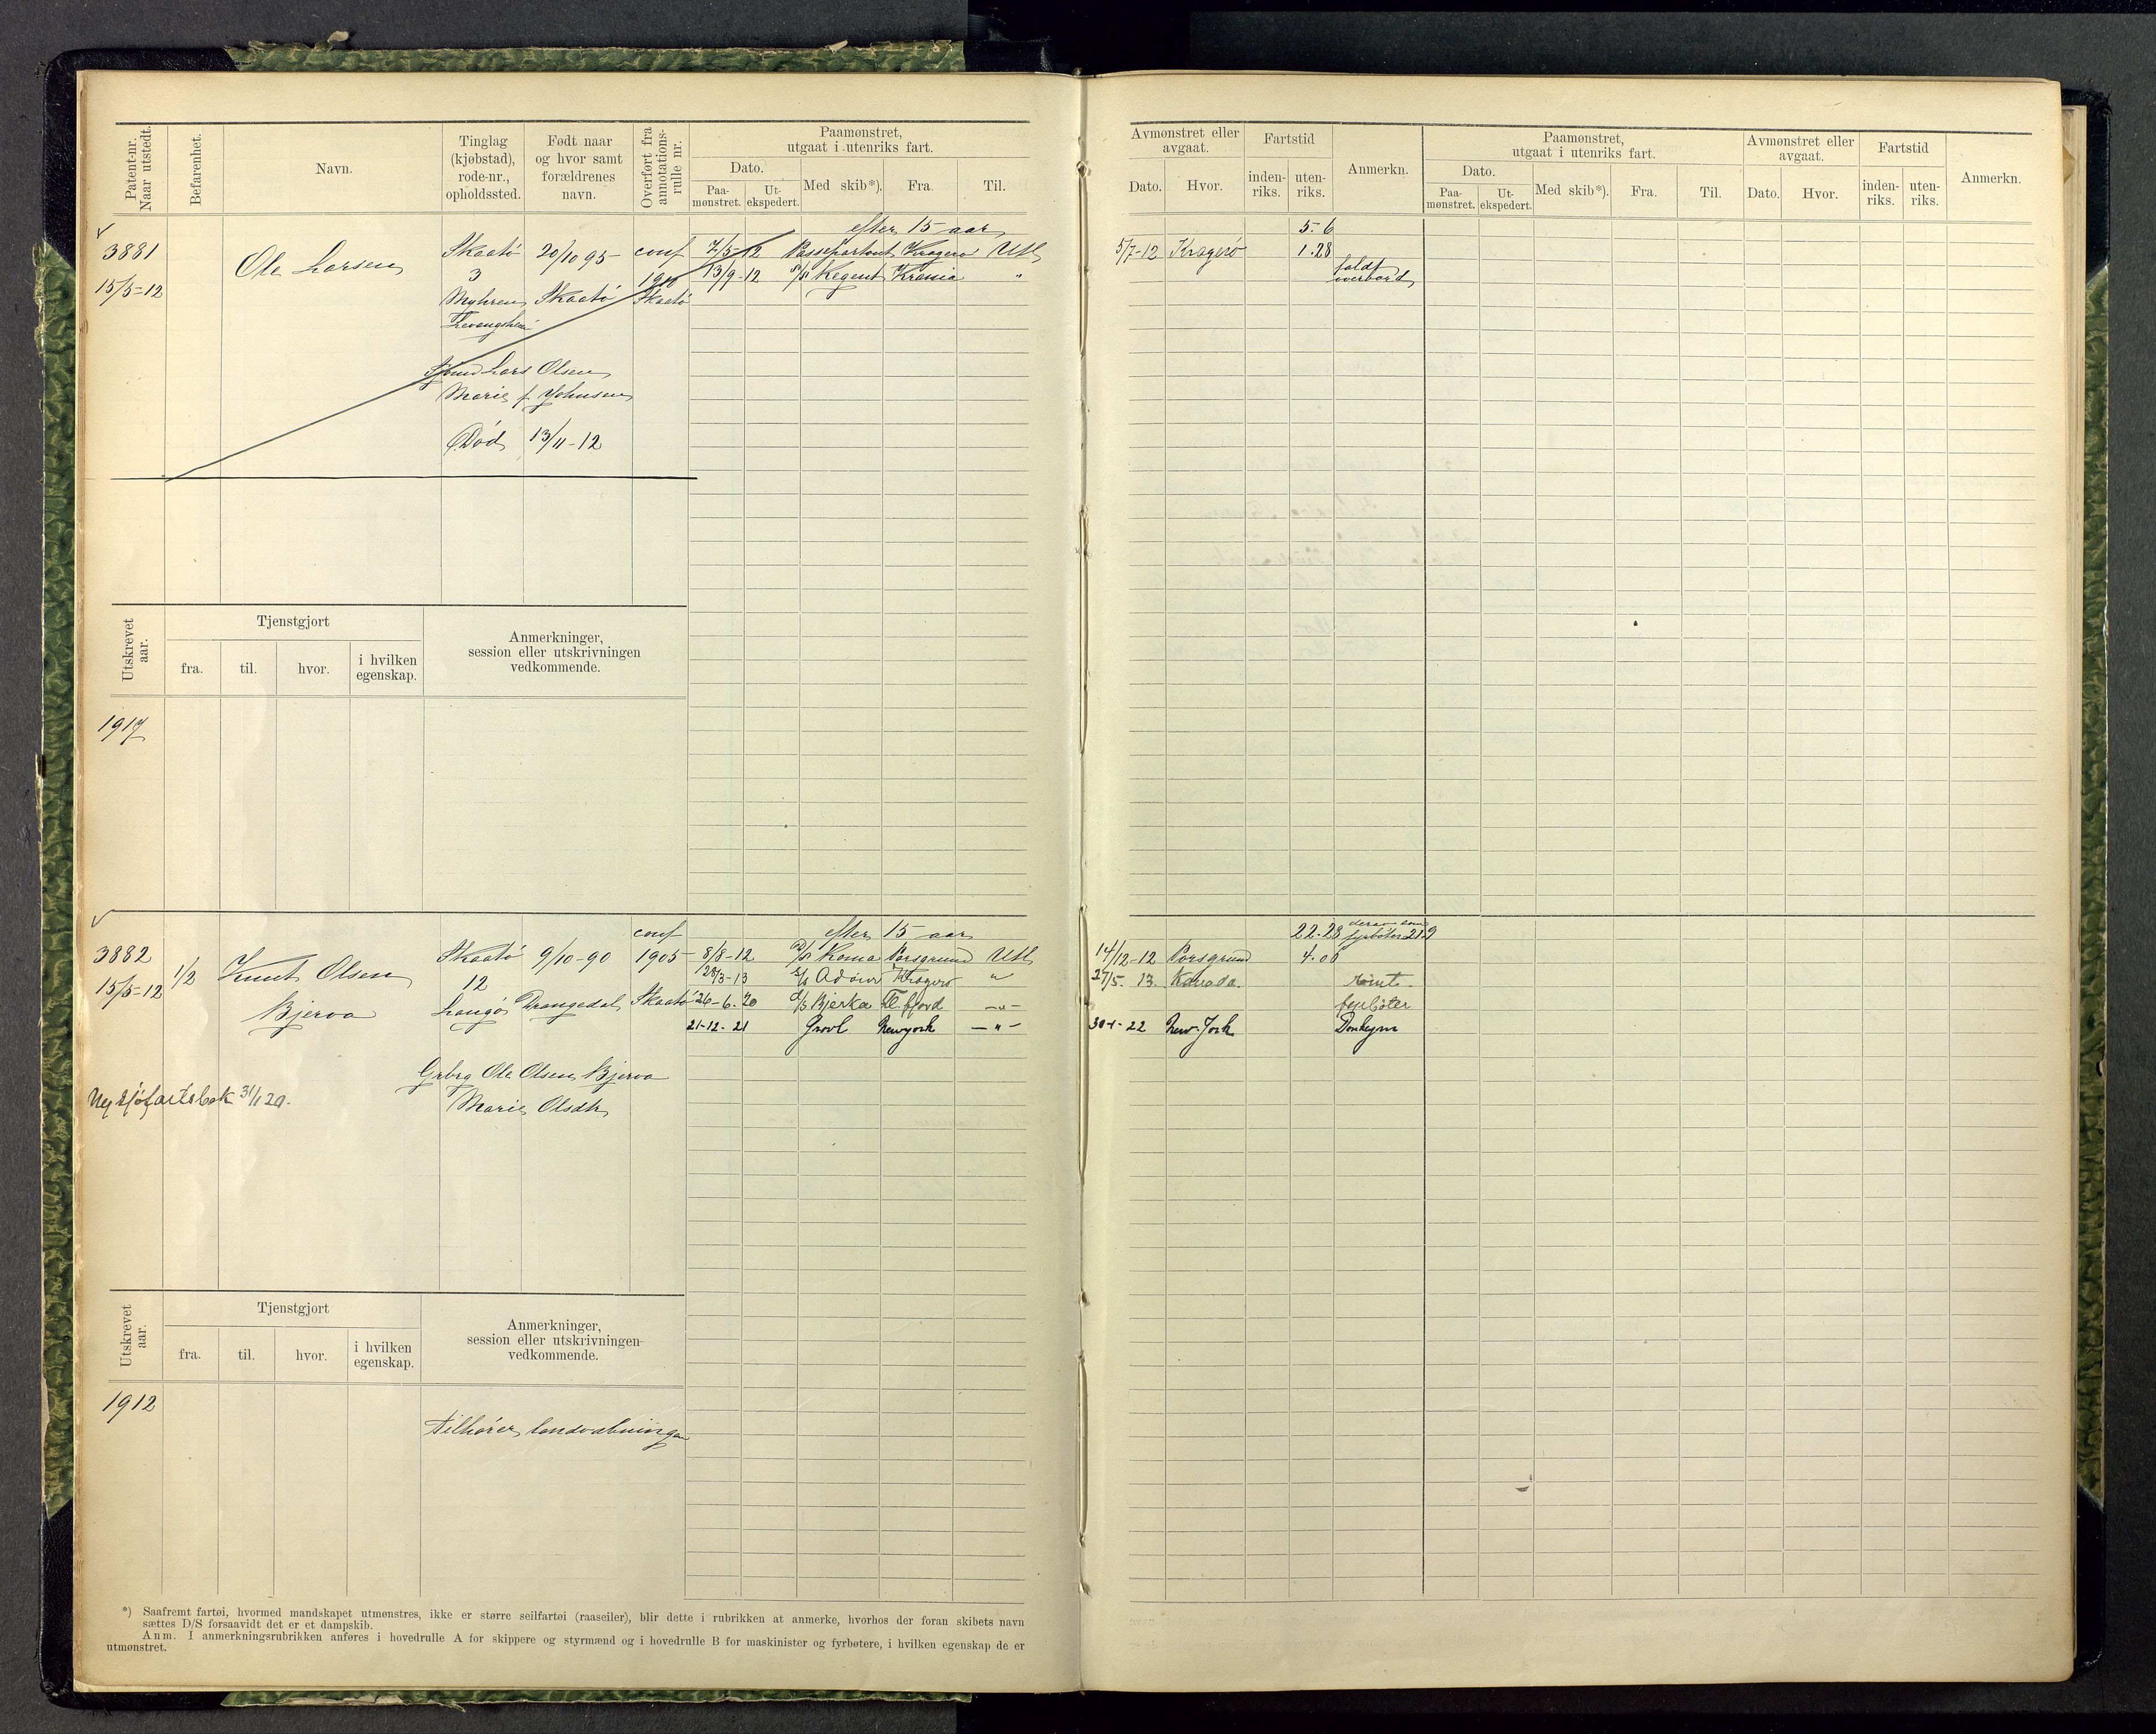 Patent-nr. Naar utstedt.
Befarenhet.
Navn.
Tinglag (kjøbstad), rode-nr., opholdssted.
Født naar og hvor samt forældrenes navn.
Overført fra annotations-rulle nr.
Paamønstret, utgaat i utenriks fart.
Dato.
Paa-mønstret.
Ut-ekspedert.
Med skib*).
Fra.
Til.
Avmønstret eller avgaat.
Dato.
Hvor.
Fartstid
inden-riks.
uten-riks.
Anmerkn.
Paamønstret, utgaat i utenriks fart.
Dato.
Paa-mønstret.
Ut-ekspedert.
Med skib*).
Fra.
Til.
Avmønstret eller avgaat.
Dato.
Hvor.
Fartstid
inden-riks.
uten-riks.
Anmerkn.
efter 15 aar 5.6
3881 Ole Larsen Skaatö 20/10 95 conf 7/5-12 Passepartout Kragerø Utl 5/7-12 Kragerø 1.28
15/5=12 3 1910 13/9-12 Regent Krania " faldt overbord
Myhren Skaatö Skaatö
Levangsheia
Lars Olsen
Marie f. Johnsen
Död 13/11-12
Utskrevet aar.
Tjenstgjort
fra.
til.
hvor.
i hvilken egenskap.
Anmerkninger, session eller utskrivningen vedkommende.
1917
conf efter 15 aar 22.28 fyrböter 21.9
3882 1/2 Knut Olsen Skaatö 9/10-90 1905 8/8-12 D/S Roma Porsgrund Utl 14/12-12 Porsgrund 4.06
15/5=12 12 28/3-13 Kragerø " 27/5. 13. Kanada. römt
Bjerva Langö Drangedal Skaatö 26-6.20 D/S Bjerka Fl.fjord -"- fyrböter
21-12-21 Grovl Newyork -"- 30-1-22 New-York Donkeym
Grbrg Ole Olsen Bjerva
Ny sjøfartsbok 31/1 20.
Marie Olsdtr
Utskrevet aar.
Tjenstgjort
fra.
til.
hvor.
i hvilken egenskap.
Anmerkninger, session eller utskrivningen vedkommende.
1912
Tilhörer landvæbningen
*) Saafremt fartøi, hvormed mandskapet utmønstres, ikke er større seilfartøi (raaseiler), blir dette i rubrikken at anmerke, hvorhos der foran skibets navn
sættes D/S forsaavidt det er et dampskib.
Anm. I anmerkningsrubrikken anføres i hovedrulle A for skippere og styrmænd og i hovedrulle B for maskinister og fyrbøtere, i hvilken egenskap de er
utmønstret.